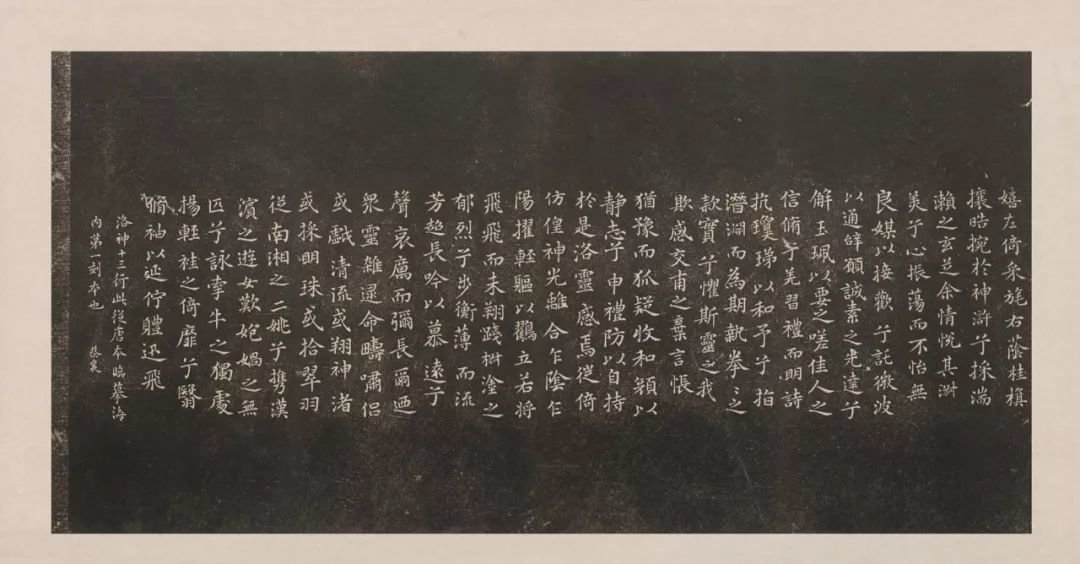 嬉左倚采旄右蔭桂旗
攘皓捥於神滸兮採湍
瀨之玄芝余情悅其淑
美兮心振蕩而不怡無
良媒以接懽兮託微波
以通辝願誠素之先達兮
解玉珮以要之嗟佳人之
信脩兮羌習禮而明詩
抗瓊珶以和予兮指
潛淵而為期執拳拳之
款實兮懼斯靈之我
欺感交甫之棄言悵
猶豫而狐疑收和顏以
静志兮申禮防以自持
於是洛靈感焉徙倚
仿偟神光離合乍陰乍
陽擢輕軀以鶴立若將
飛飛而未翔踐椒塗之
郁烈兮步衡薄而流
芳超長吟以慕遠兮
聲哀厲而彌長爾迺
眾靈雜遝命疇嘯侶
或戲清流或翔神渚
或採明珠或拾翠羽
從南湘之二姚兮攜漢
濱之遊女歎匏媧之無
匹兮詠牽牛之獨處
揚輕袿之倚靡兮翳
脩袖以延佇體迅飛
洛神十三行此從唐本臨摹海
内第一刻本也